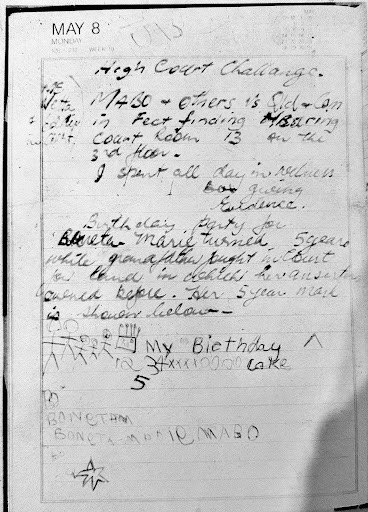 MAY 8
MONDAY
High Court Challange.
MABO & others vs Qld & Com
in Fact finding Hearing
Court Room 13 on the
3rd floor.
I spent all day in witness
box giving
Evidence.
Birthday party for
Boneta Marie turned 5 years
while grandfather fought in Court
for land in which her ancestors
owned before. Her 5 year mark
is shown below
My Birthday
cake
5
B
BONETAM
BONETA-MARIE MABO